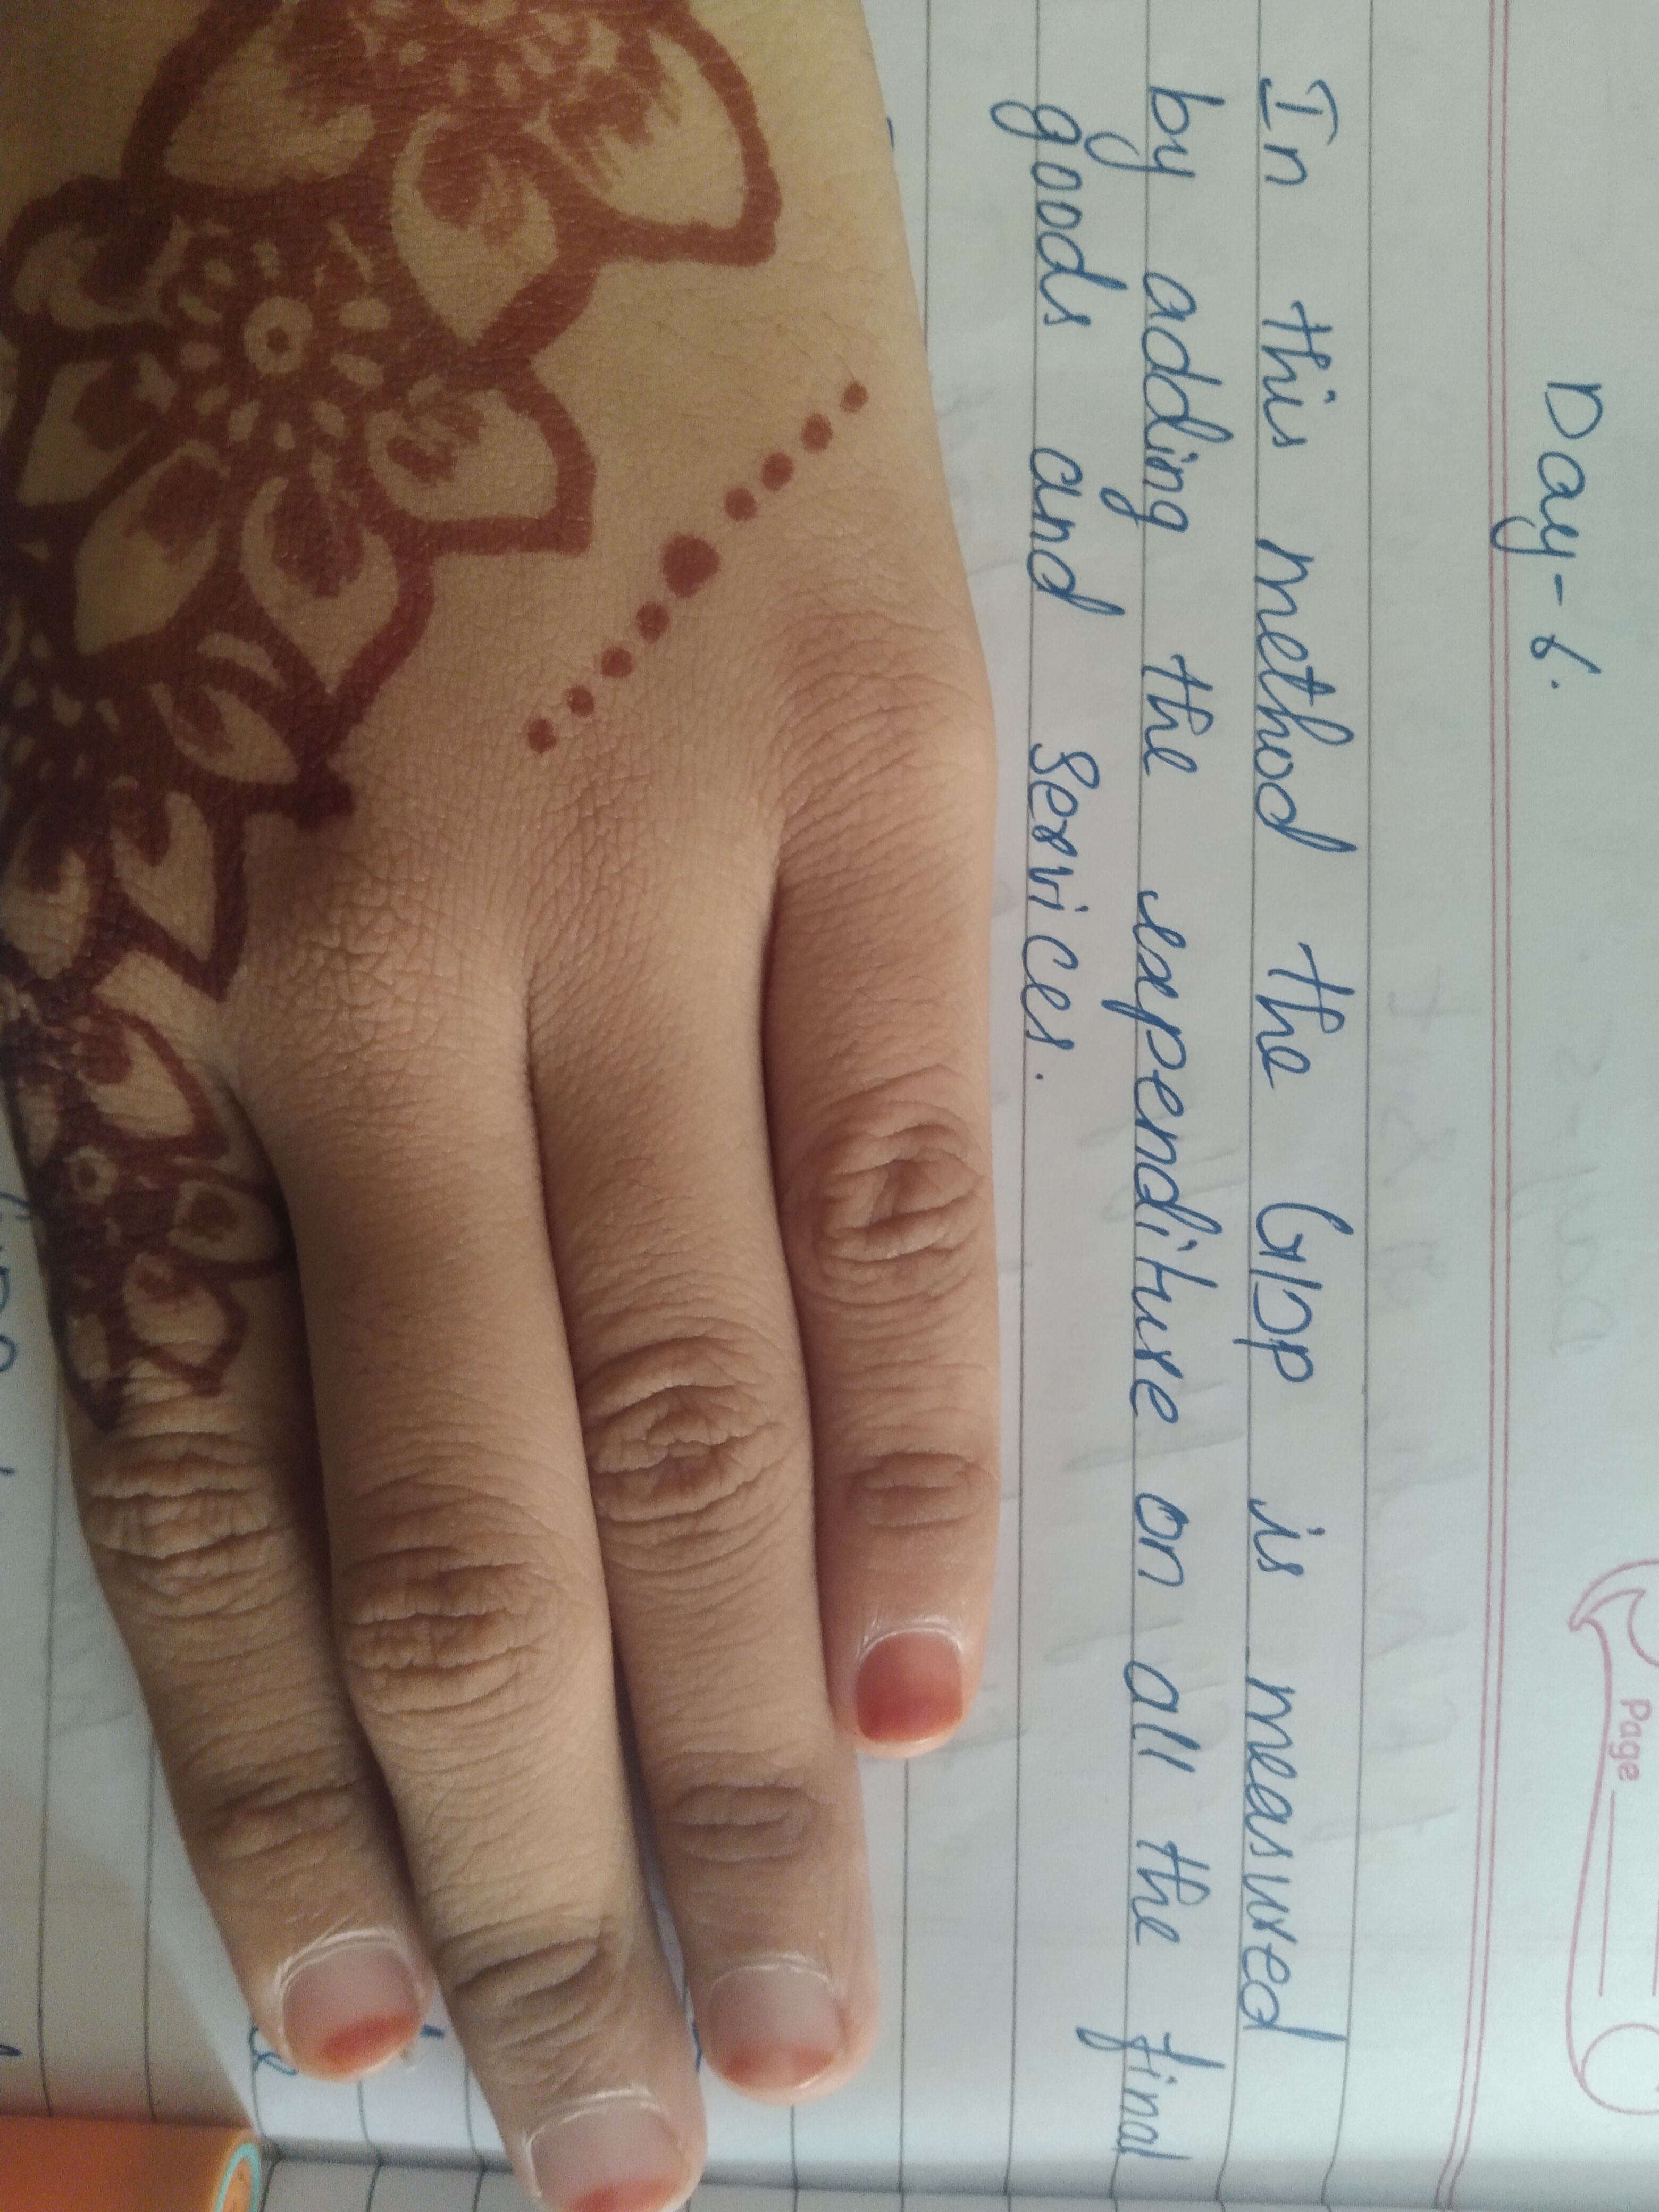 Page
Day-6.
In this method the GDP is measured
by adding the expenditure on all the final
goods and services.